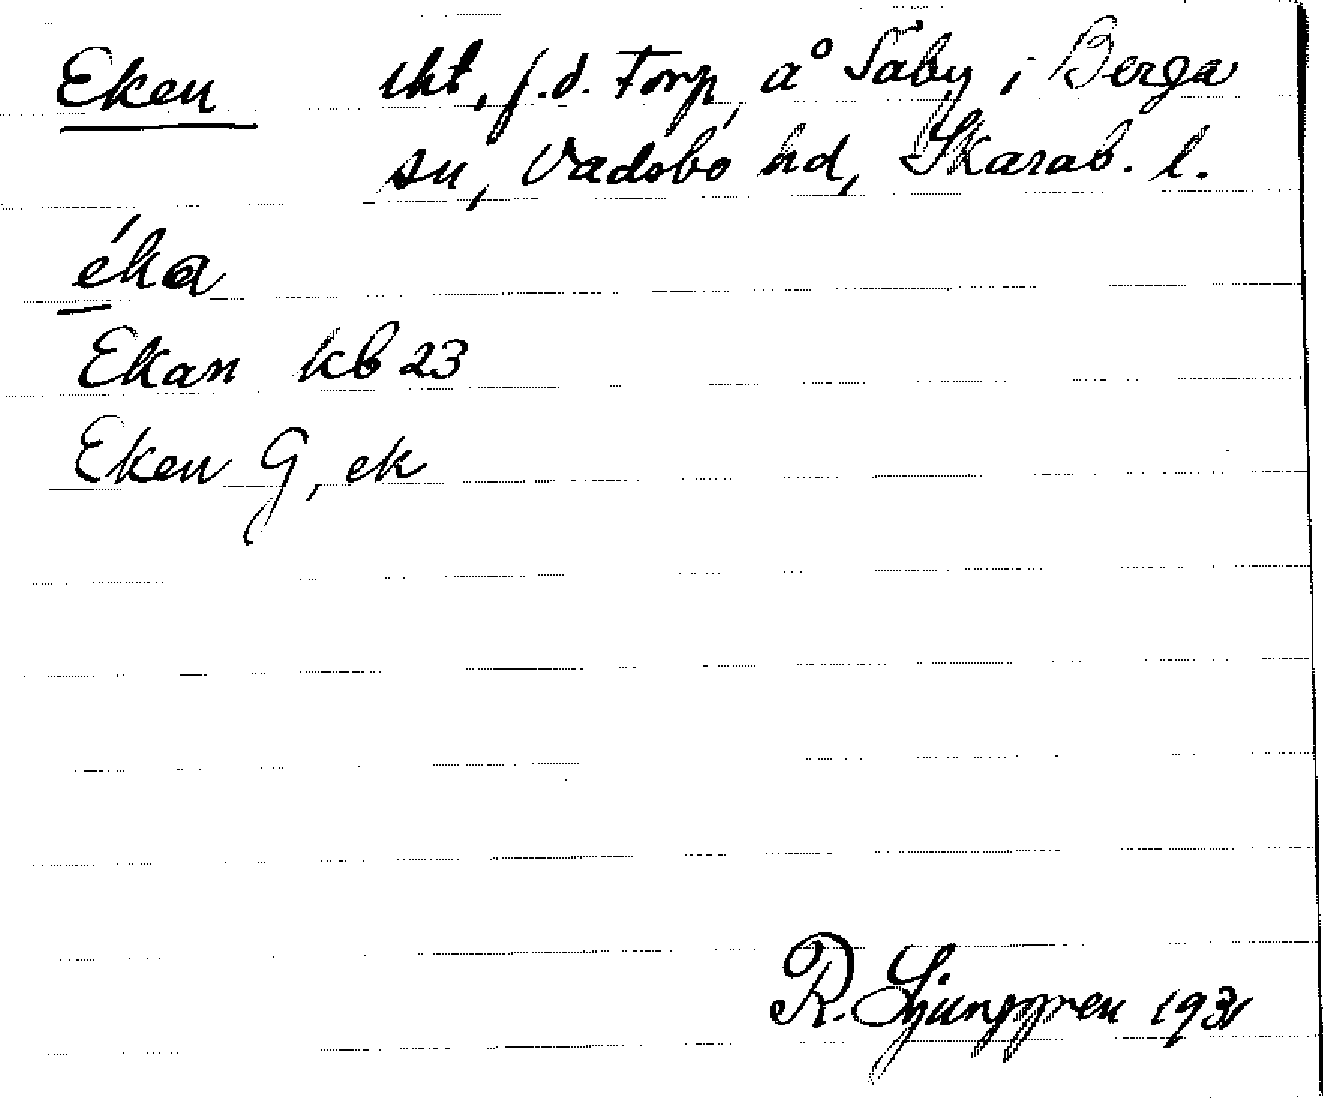 Eken lht, f.d. Torp å Säby i Berga
sn, Vadsbo hd, Skarab. l.
éka
Ekan kb 23
Eken G, ek
R. Ljunggren 1931